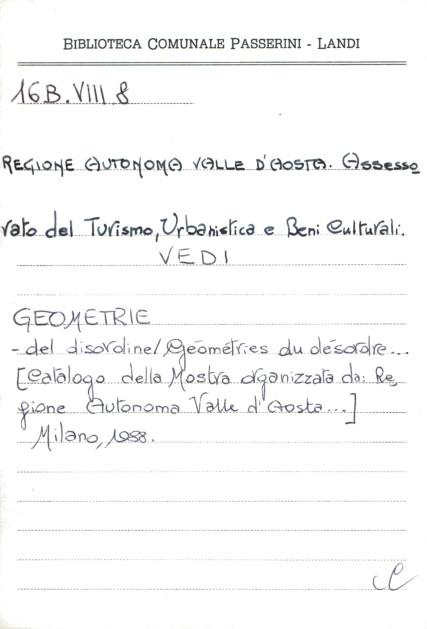 BIBLIOTECA COMUNALE PASSERINI - LANDI
16B.VIII 8
REGIONE AUTONOMA VALLE D'AOSTA. Assesso
rato del Turismo, Urbanistica e Beni Culturali.
VEDI
GEOMETRIE
- del disordine/Géométries du désordre...
[Catalogo della Mostra organizzata da: Re
gione Autonoma Valle d'Aosta...]
Milano, 1988.